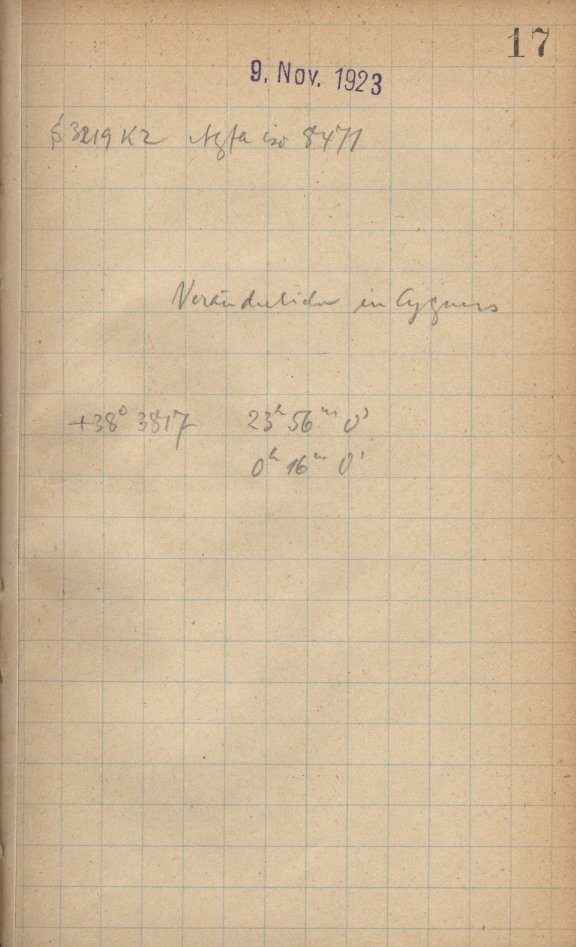 17
9. Nov. 1923
S 3219 K2 Agfa iso 8471
Veränderlicher in Cygnus
+38° 3817 23ʰ 56ᵐ 0ˢ
0ʰ 16ᵐ 0ˢ